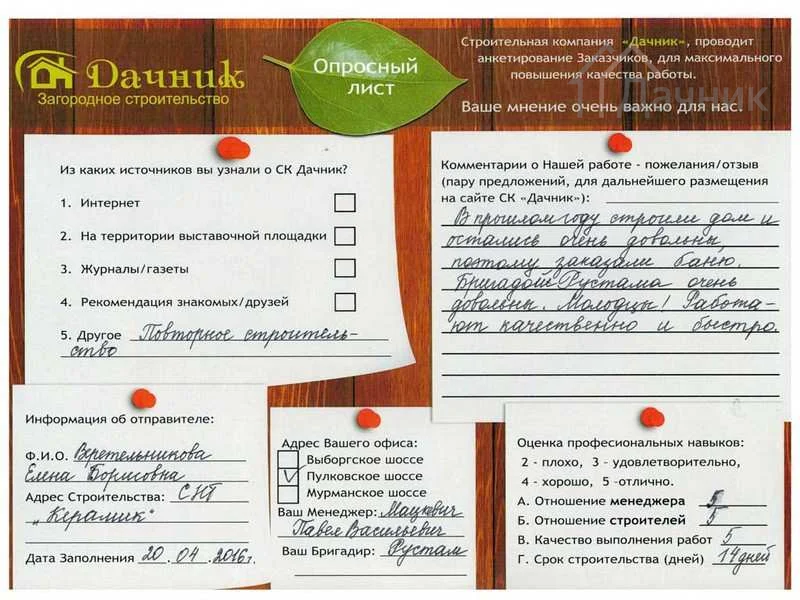 Дачник
Загородное строительство
Опросный
лист
Строительная компания «Дачник», проводит
анкетирование Заказчиков, для максимального
повышения качества работы.
Ваше мнение очень важно для нас.
Дачник
Из каких источников вы узнали о СК Дачник?
1. Интернет
2. На территории выставочной площадки
3. Журналы/газеты
4. Рекомендация знакомых/друзей
5. Другое Повторное строитель-
ство
Комментарии о Нашей работе - пожелания/отзыв
(пару предложений, для дальнейшего размещения
на сайте СК «Дачник»):
В прошлом году строили дом и
остались очень довольны,
поэтому заказали баню.
Бригадой Рустама очень
довольны. Молодцы! Работа-
ют качественно и быстро.
Информация об отправителе:
Ф.И.О. Веретельникова
Елена Борисовна
Адрес Строительства: СНТ
„Керамик"
Дата Заполнения 20.04.2016г.
Адрес Вашего офиса:
Выборгское шоссе
Пулковское шоссе
Мурманское шоссе
Ваш Менеджер: Мацкевич
Павел Васильевич
Ваш Бригадир: Рустам
Оценка профессиональных навыков:
2 - плохо, 3 - удовлетворительно,
4 - хорошо, 5 -отлично.
А. Отношение менеджера 5
Б. Отношение строителей 5
В. Качество выполнения работ 5
Г. Срок строительства (дней) 14 дней